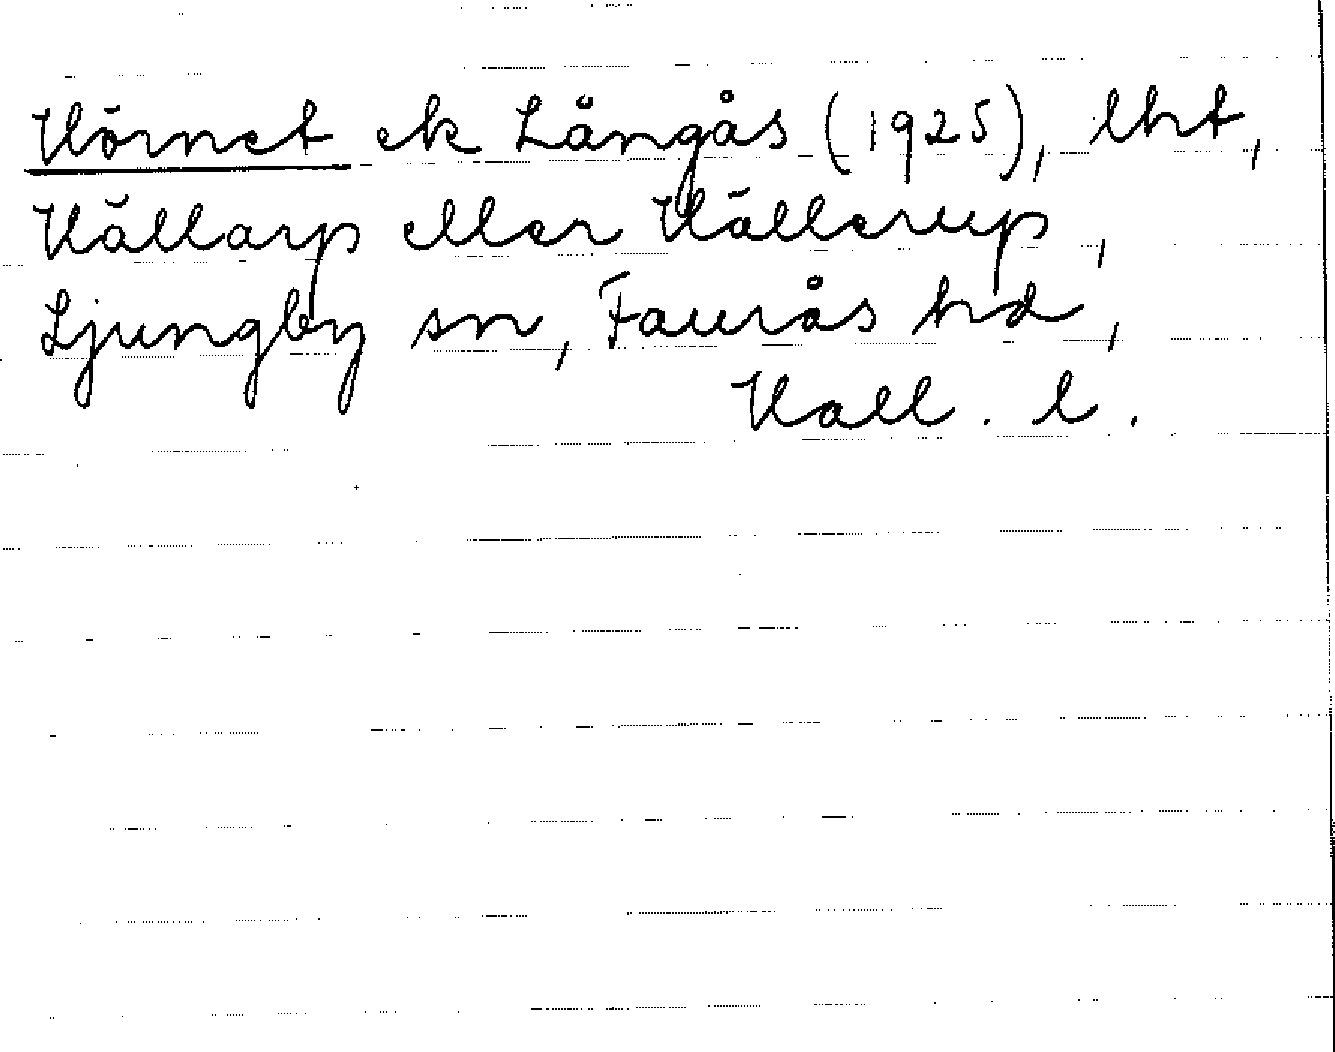 Hörnet ek Långås (1925), lht,
Hällarp eller Hällerup,
Ljungby sn, Faurås hd,
Hall. l.